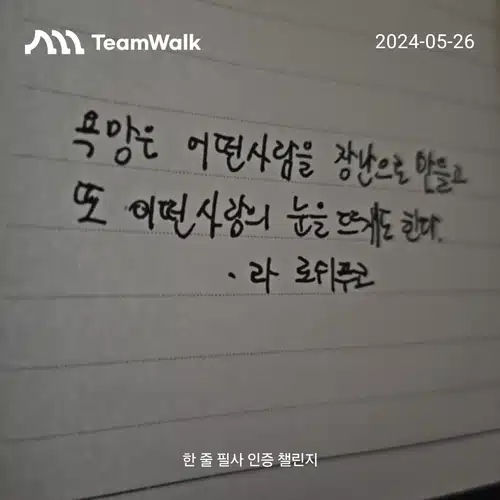 TeamWalk
2024-05-26
욕망은 어떤사람을 장난으로 만들고
또 어떤사람의 눈을 뜨게도 한다.
· 라 로쉬푸코
한 줄 필사 인증 챌린지